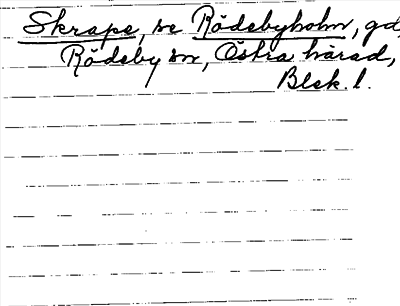 Skrape, se Rödebyholm, gd,
Rödeby sn, Östra härad,
Blek. l.